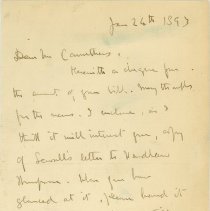 Jan 26th 1893
Dear Mr Carruthers,
Herewith a cheque for
the amount of your bill. Many thanks
for the news. I enclose, as I
think it will interest you, a copy
of Sewall's letter to
. When you have
glanced at it, please hand it